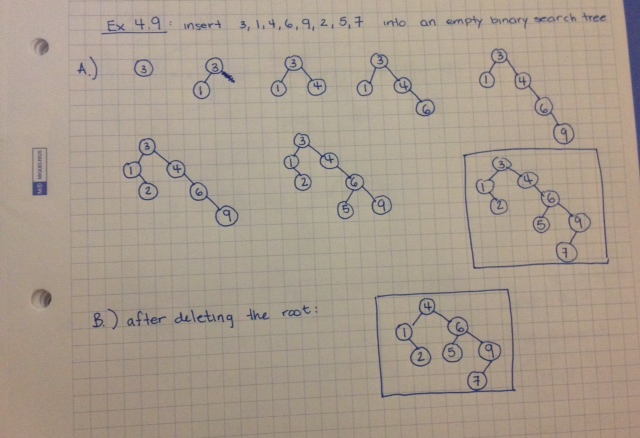 Ex 4.9: insert 3, 1, 4, 6, 9, 2, 5, 7 into an empty binary search tree
A.)
3
3
1
3
1 4
3
1 4
6
3
1 4
6
9
3
1 4
2 6
9
3
1 4
2 6
5 9
3
1 4
2 6
5 9
7
B.) after deleting the root:
4
1 6
2 5 9
7